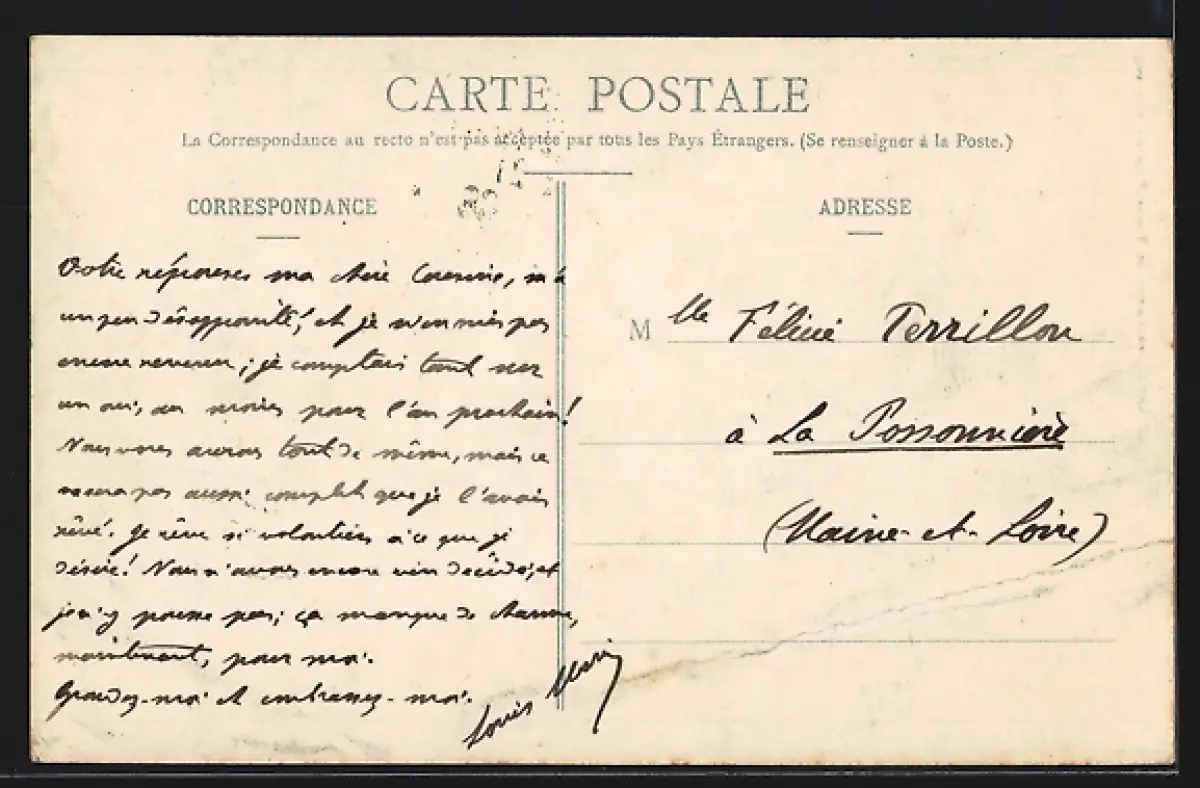 CARTE POSTALE
La Correspondance au recto n'est pas acceptée par tous les Pays Étrangers. (Se renseigner à la Poste.)
CORRESPONDANCE
Votre réponse, ma chère Cousine, m'a
un peu désappointé, et je n'en suis pas
encore revenu; je comptais tant sur
un oui, au moins pour l'an prochain!
Nous vous aurons tout de même, mais ce
ne sera pas aussi complet que je l'avais
rêvé. Je rêve si volontiers à ce que je
désire! Nous n'avons encore rien décidé, et
je n'y pousse pas; ça manque de charme,
maintenant, pour moi.
Grondez-moi et embrassez-moi.
Louis
ADRESSE
Mlle Félicie Terrillon
à La Possonnière
(Maine-et-Loire)